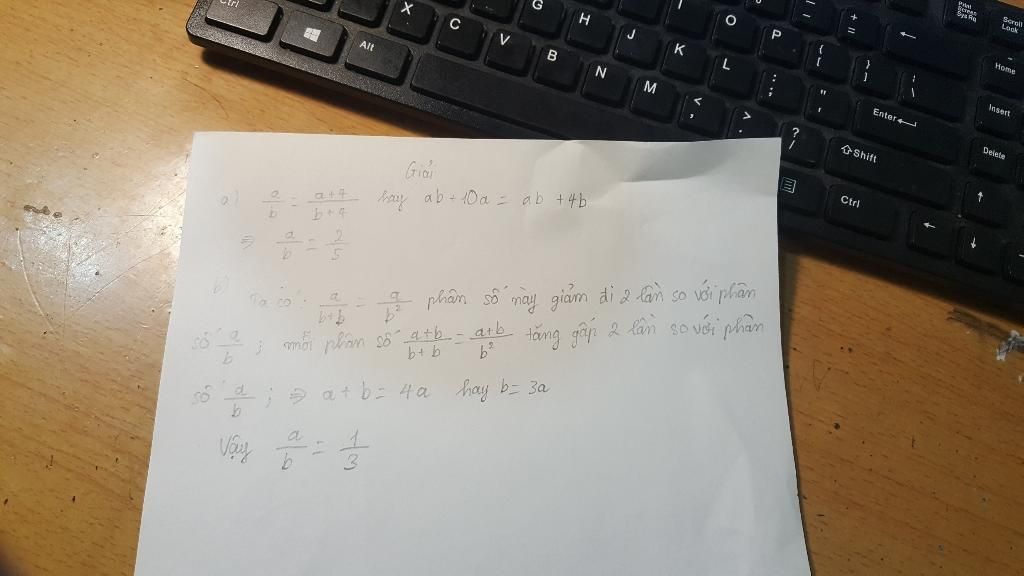 Ctrl
Alt
X
C
V
B
N
M
G
H
J
K
L
I
O
P
{
[
}
]
|
\
:
;
"
'
<
,
>
.
?
/
_
-
+
=
←
Print Screen SysRq
Scroll Lock
Home
Insert
Delete
Enter
Shift
Ctrl
↑
←
↓
Giải
a) a/b = a+4/b+4 hay ab + 10a = ab + 4b
⇒ a/b = 2/5
b) Ta có: a/b+b = a/b² phân số này giảm đi 2 lần so với phân
số a/b ; mỗi phân số a+b/b+b = a+b/b² tăng gấp 2 lần so với phân
số a/b ; ⇒ a + b = 4a hay b = 3a
Vậy a/b = 1/3